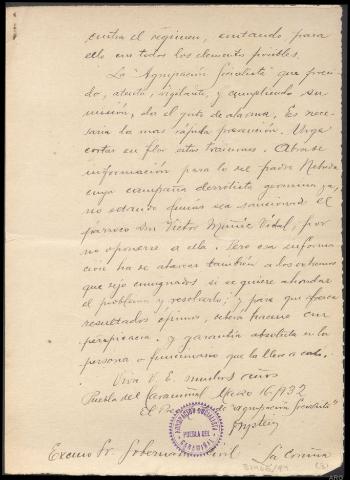 contra el régimen, contando para
ello con todos los elementos posibles.
La "Agrupación Socialista" que presi-
do, atenta, vigilante, y cumpliendo su
misión, da el grito de alarma. Es nece-
saria la mas rápida prevención. Urge
cortar en flor estas traiciones. Abrase
información para la del padre
cuya campaña derrotista germina ya,
no estando demás sea sancionado el
parroco Don Victor Muñiz Vidal, por
no oponerse a ella. Pero esa informa-
cion ha de abarcar también a los extremos
que dejo consignados, si se quiere ahondar
el problema y resolverlo; y para que ofrezca
resultados óptimos, debera hacerse con
perspicacia y garantia absoluta en la
persona o funcionario que la lleve a cabo.
Viva V. E. muchos años
Puebla del Caramiñal, Marzo 16-1932
El de "Agrupación Socialista"
AGRUPACIÓN SOCIALISTA
PUEBLA DEL
CARAMIÑAL
Excmo Sr. Gobernador Civil La Coruña
(3)